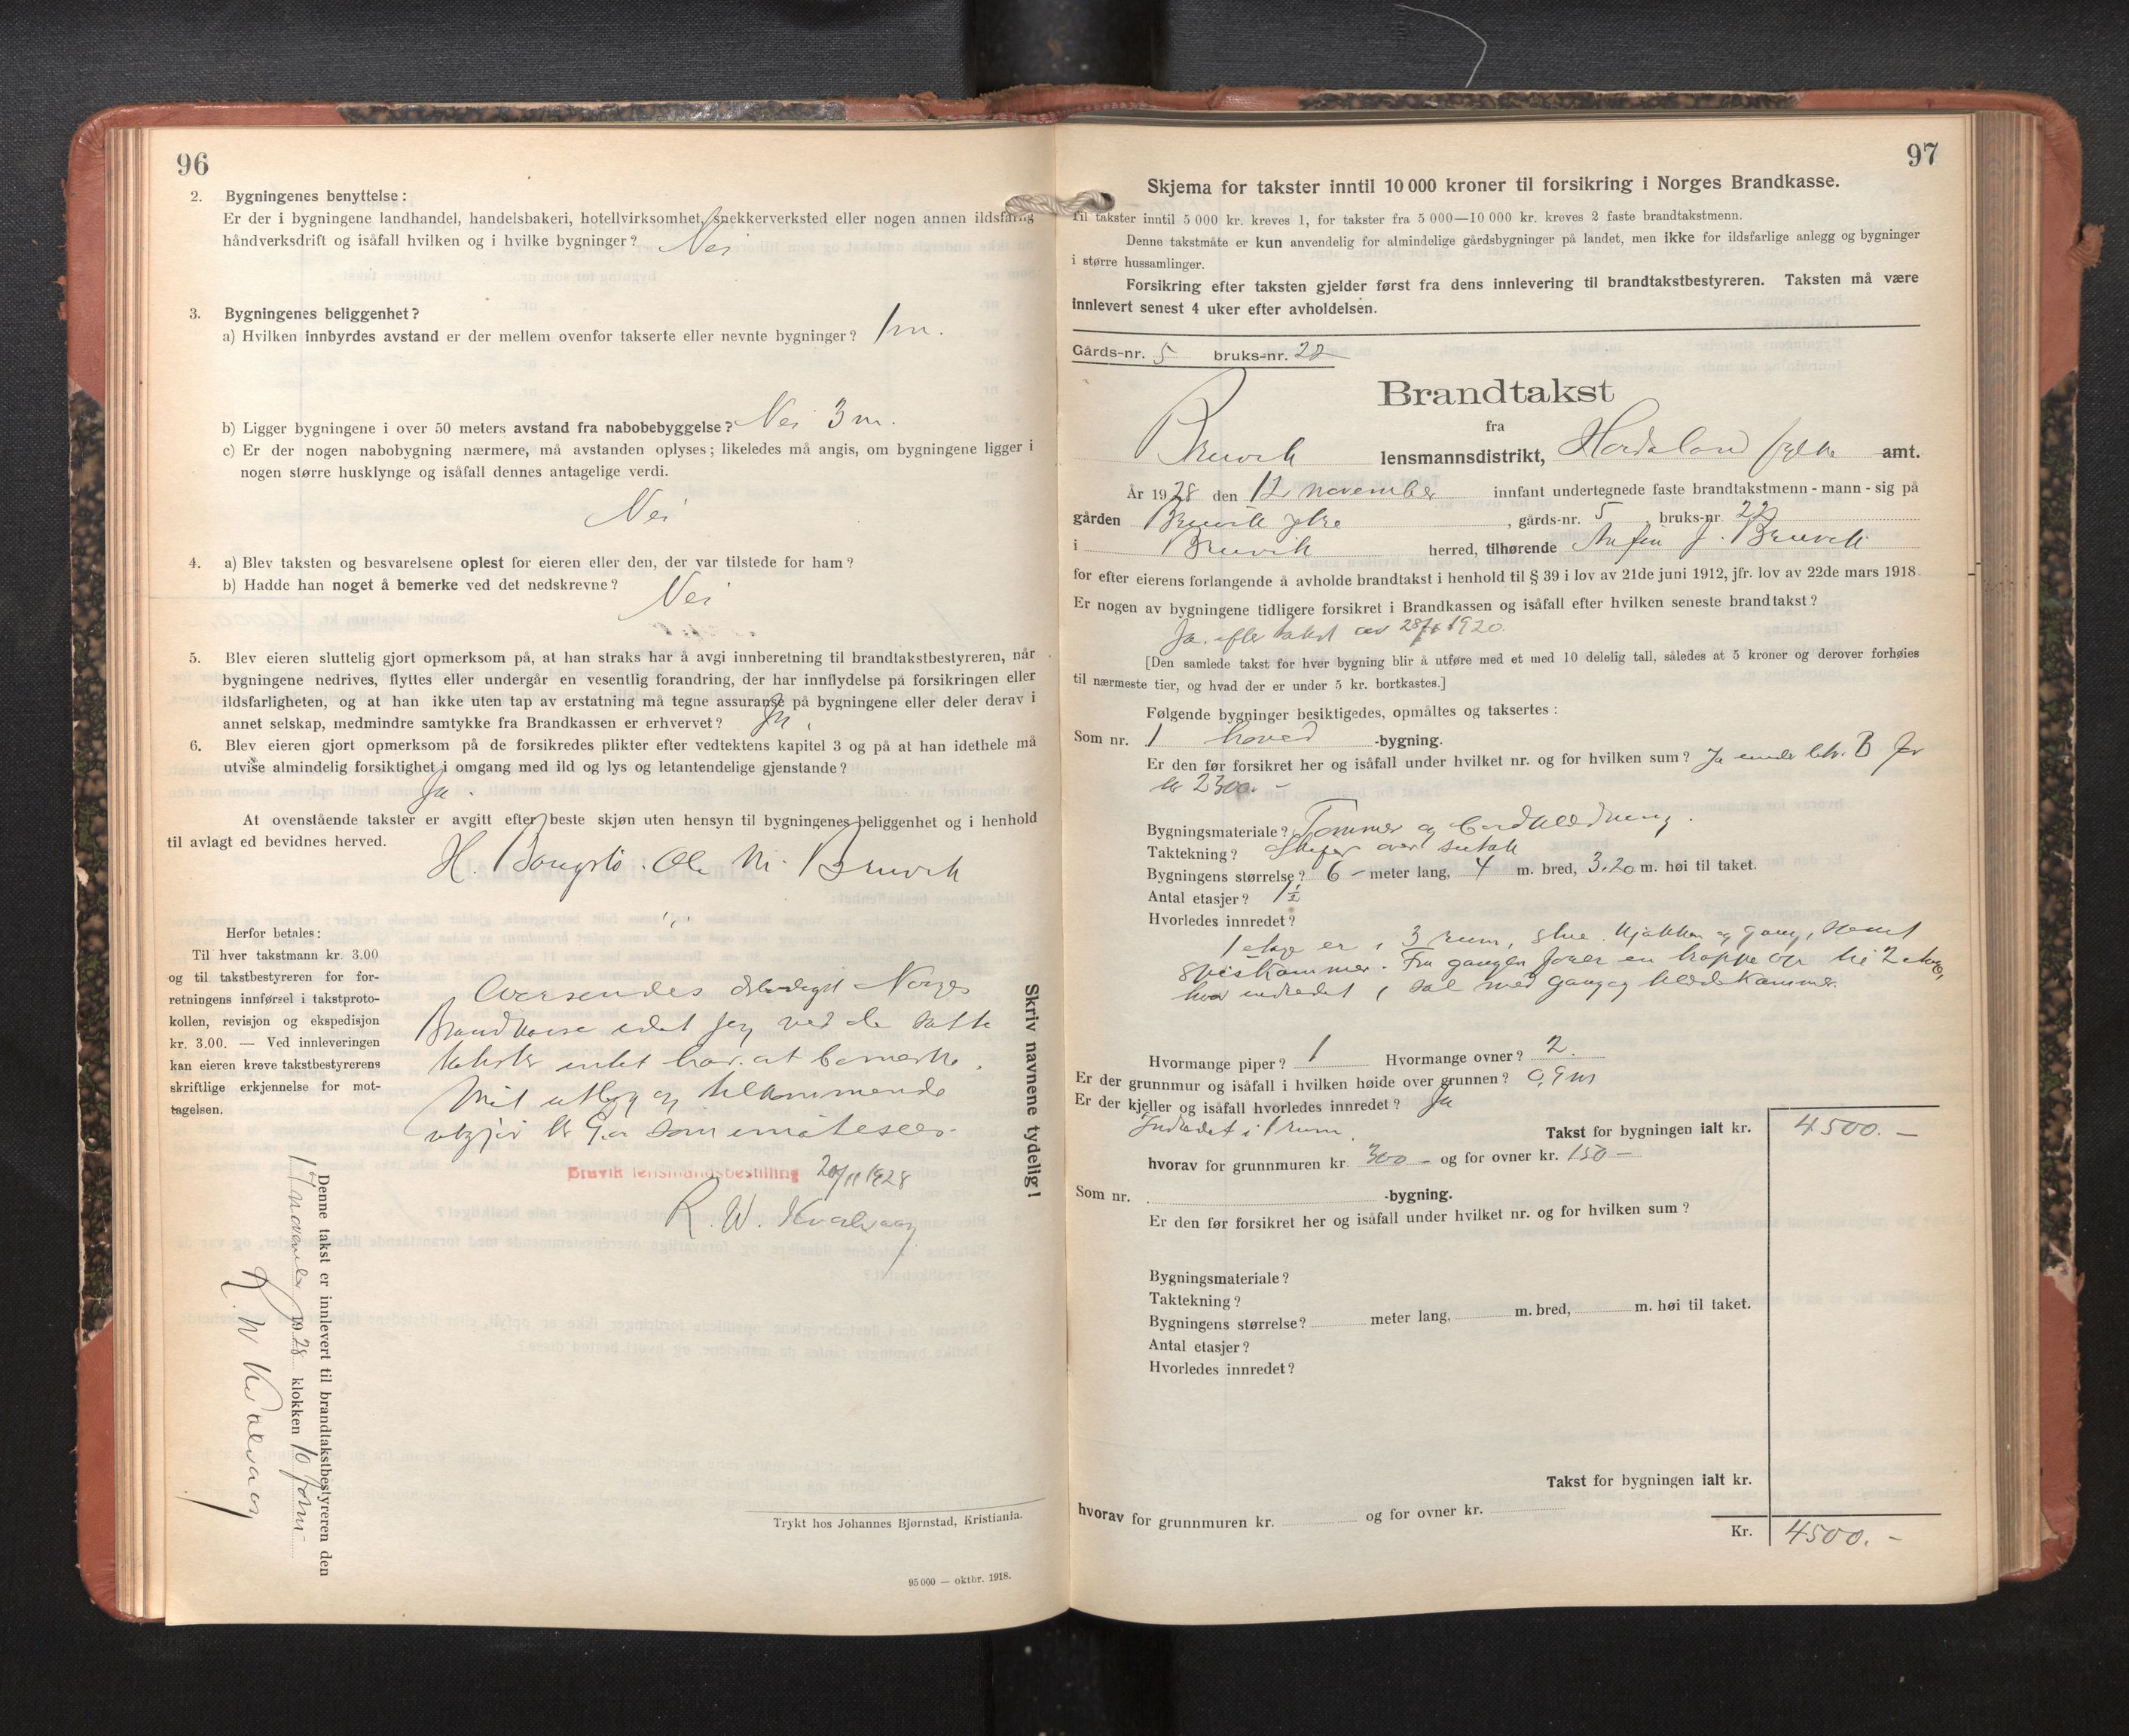 96
2. Bygningenes benyttelse:
Er der i bygningene landhandel, handelsbakeri, hotellvirksomhet, snekkerverksted eller nogen annen ildsfarlig
håndverksdrift og isåfall hvilken og i hvilke bygninger? Nei
3. Bygningenes beliggenhet?
a) Hvilken innbyrdes avstand er der mellem ovenfor takserte eller nevnte bygninger? 1 m.
b) Ligger bygningene i over 50 meters avstand fra nabobebyggelse? Nei 3 m.
c) Er der nogen nabobygning nærmere, må avstanden oplyses; likeledes må angis, om bygningene ligger i
nogen større husklynge og isåfall dennes antagelige verdi.
Nei
4. a) Blev taksten og besvarelsene oplest for eieren eller den, der var tilstede for ham?
b) Hadde han noget å bemerke ved det nedskrevne?
Nei
5. Blev eieren sluttelig gjort opmerksom på, at han straks har å avgi innberetning til brandtakstbestyreren, når
bygningene nedrives, flyttes eller undergår en vesentlig forandring, der har innflydelse på forsikringen eller
ildsfarligheten, og at han ikke uten tap av erstatning må tegne assuranse på bygningene eller deler derav i
annet selskap, medmindre samtykke fra Brandkassen er erhvervet? Ja.
6. Blev eieren gjort opmerksom på de forsikredes plikter efter vedtektens kapitel 3 og på at han idethele må
utvise almindelig forsiktighet i omgang med ild og lys og letantendelige gjenstande?
Ja.
At ovenstående takster er avgitt efter beste skjøn uten hensyn til bygningenes beliggenhet og i henhold
til avlagt ed bevidnes herved.
Ole M. Bruvik
Herfor betales:
Til hver takstmann kr. 3.00
og til takstbestyreren for for-
retningens innførsel i takstproto-
kollen, revisjon og ekspedisjon
kr. 3.00. — Ved innleveringen
kan eieren kreve takstbestyrerens
skriftlige erkjennelse for mot-
tagelsen.
Oversendes Norges
Brandkasse idet jeg ved de satte
takster intet har at bemerke.
Mit utlæg og tilkommende
utgjør kr 9.00 som imøtesees.
Bruvik lensmandsbestilling 20/11 1928
R. W. Kvalvaag
Skriv navnene tydelig!
Denne takst er innlevert til brandtakstbestyreren den
17 november 1928 klokken 10 form
R. W Kvalvaag
Trykt hos Johannes Bjørnstad, Kristiania.
95 000 — oktbr. 1918.
97
Skjema for takster inntil 10 000 kroner til forsikring i Norges Brandkasse.
Til takster inntil 5 000 kr. kreves 1, for takster fra 5 000—10 000 kr. kreves 2 faste brandtakstmenn.
Denne takstmåte er kun anvendelig for almindelige gårdsbygninger på landet, men ikke for ildsfarlige anlegg og bygninger
i større hussamlinger.
Forsikring efter taksten gjelder først fra dens innlevering til brandtakstbestyreren. Taksten må være
innlevert senest 4 uker efter avholdelsen.
Gårds-nr. 5 bruks-nr. 22
Brandtakst
fra
Bruvik lensmannsdistrikt, Hordaland fylke amt.
År 1928 den 12 november innfant undertegnede faste brandtakstmenn - mann - sig på
gården Bruvik ytre, gårds-nr. 5 bruks-nr. 22
i Bruvik herred, tilhørende Anfin J. Bruvik
for efter eierens forlangende å avholde brandtakst i henhold til § 39 i lov av 21de juni 1912, jfr. lov av 22de mars 1918.
Er nogen av bygningene tidligere forsikret i Brandkassen og isåfall efter hvilken seneste brandtakst?
Ja. efter takst av 1920.
[Den samlede takst for hver bygning blir å utføre med et med 10 delelig tall, således at 5 kroner og derover forhøies
til nærmeste tier, og hvad der er under 5 kr. bortkastes.]
Følgende bygninger besiktigedes, opmåltes og taksertes:
Som nr. 1 hoved -bygning.
Er den før forsikret her og isåfall under hvilket nr. og for hvilken sum? Ja under litr. B for
kr 2300.-
Bygningsmateriale? Tømmer og bordklædning.
Taktekning? Skifer over sutak
Bygningens størrelse? 6 - meter lang, 4 m. bred, 3.20 m. høi til taket.
Antal etasjer? 1½
Hvorledes innredet?
1 etage er i 3 rum, stue, kjøkken og gang, samt
spiskammer. Fra gangen fører en trappe op til 2 etage,
hvor indredet i sal med gang og klædskammer.
Hvormange piper? 1 Hvormange ovner? 2.
Er der grunnmur og isåfall i hvilken høide over grunnen? 0,9 m
Er der kjeller og isåfall hvorledes innredet? Ja
Indredet i 1 rum. Takst for bygningen ialt kr. 4500.—
hvorav for grunnmuren kr. 300 - og for ovner kr. 150 -
Som nr. -bygning.
Er den før forsikret her og isåfall under hvilket nr. og for hvilken sum?
Bygningsmateriale?
Taktekning?
Bygningens størrelse? meter lang, m. bred, m. høi til taket.
Antal etasjer?
Hvorledes innredet?
Takst for bygningen ialt kr.
hvorav for grunnmuren kr. og for ovner kr.
Kr. 4500.-